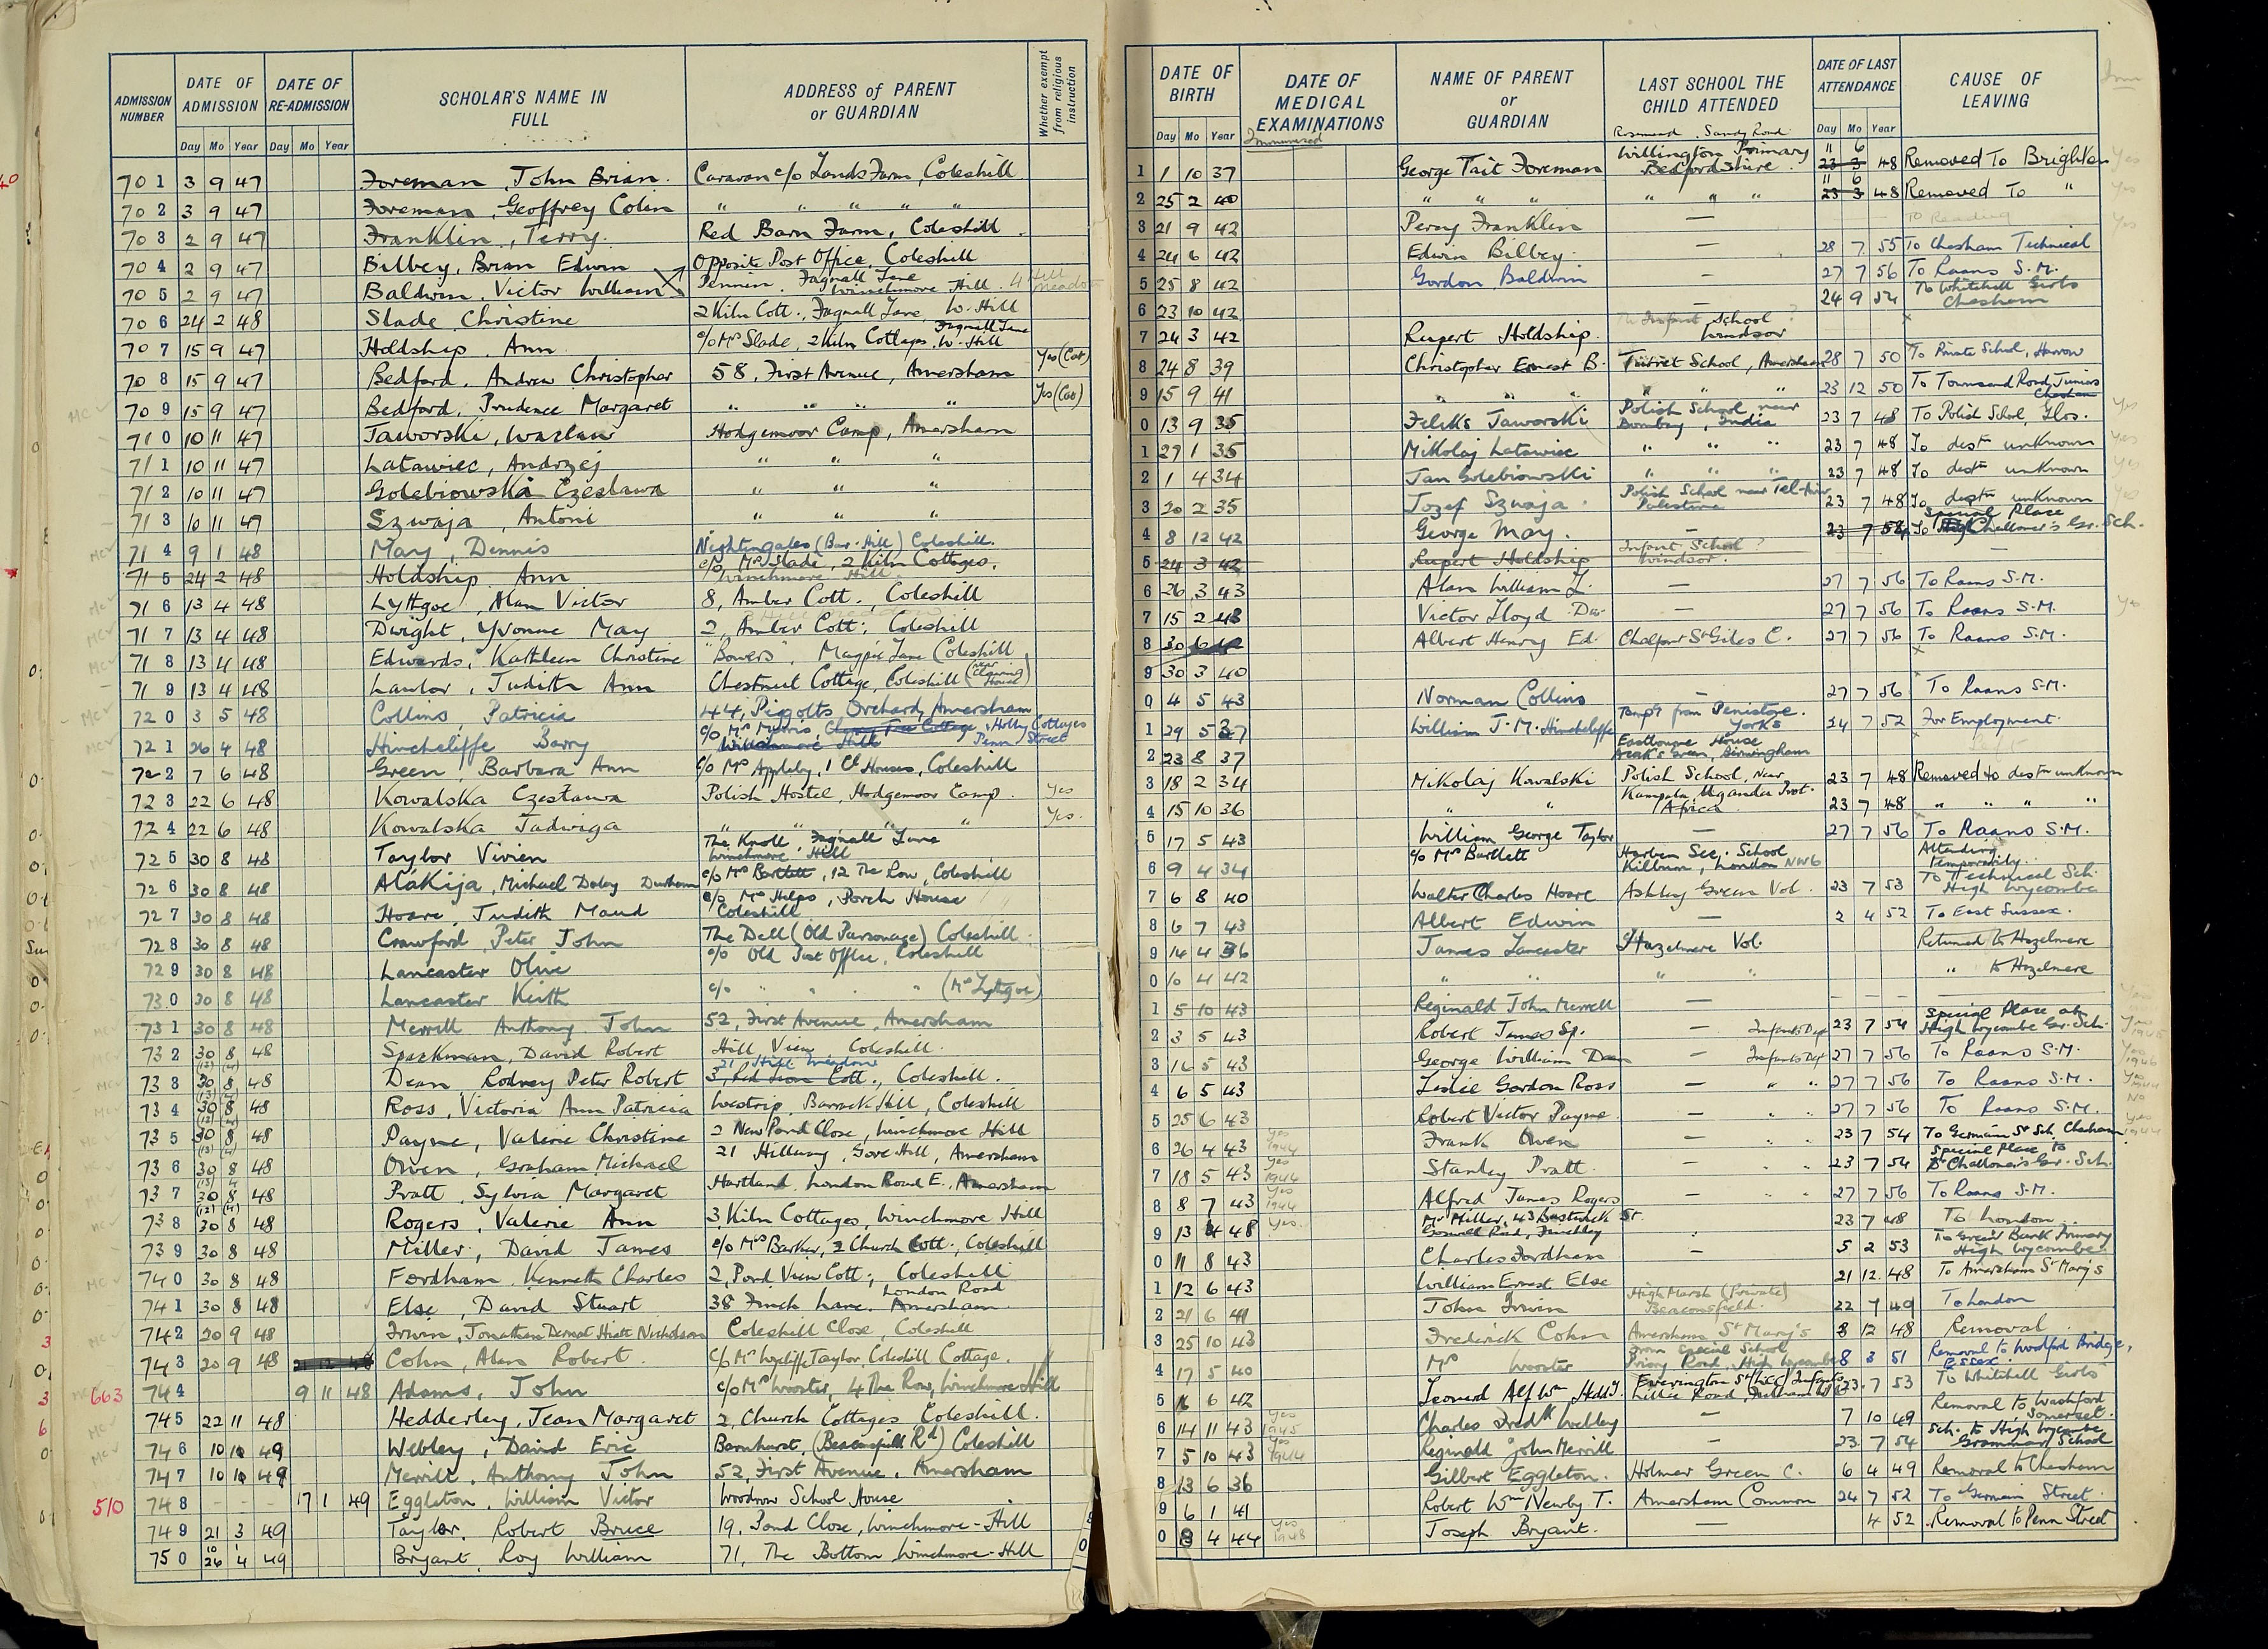 ADMISSION NUMBER | DATE OF ADMISSION Day Mo Year | DATE OF RE-ADMISSION Day Mo Year | SCHOLAR'S NAME IN FULL | ADDRESS of PARENT or GUARDIAN | Whether exempt from religious instruction
701 3 9 47 Foreman, John Brian. Caravan c/o Lands Farm, Coleshill
702 3 9 47 Foreman, Geoffrey Colin " " " " "
703 2 9 47 Franklin, Terry. Red Barn Farm, Coleshill
704 2 9 47 Bilbey, Brian Edwin Opposite Post Office, Coleshill
705 2 9 47 Baldwin, Victor William Fagnall Lane Winchmore Hill. 4 Hill meadow
706 24 2 48 Slade Christine 2 Kiln Cott., Fagnall Lane, W. Hill
707 15 9 47 Holdship. Ann. c/o Mrs Slade, 2 Kiln Cottages, W. Hill Fagnall Lane
708 15 9 47 Bedford, Andrew Christopher 58, First Avenue, Amersham Yes (Cat)
709 15 9 47 Bedford, Prudence Margaret " " " " Yes (Cat)
710 10 11 47 Jaworski, Waclaw Hodgemoor Camp, Amersham
711 10 11 47 Latawiec, Andrzej " " "
712 10 11 47 Golebiowska Czeslawa " " "
713 10 11 47 Szwaja, Antoni " " "
714 9 1 48 May, Dennis Nightingales (Bar. Hill) Coleshill.
715 24 2 48 Holdship Ann c/o Mrs Slade, 2 Kiln Cottages, Winchmore Hill.
716 13 4 48 Lythgoe, Alan Victor 8, Amber Cott., Coleshill
717 13 4 48 Dwight, Yvonne May 2, Amber Cott., Coleshill
718 13 4 48 Edwards, Kathleen Christine "Bowers", Magpie Lane Coleshill
719 13 4 48 Lawlor, Judith Ann Chestnut Cottage, Coleshill
720 3 5 48 Collins, Patricia 44, Piggotts Orchard, Amersham
721 26 4 48 Hinchcliffe Barry c/o Mrs Morris, Cherry Tree Cottage, Holly Cottages Winchmore Hill Penn Street
722 7 6 48 Green, Barbara Ann c/o Mrs Appleby, 1 Cl Houses, Coleshill
723 22 6 48 Kowalska Czesława Polish Hostel, Hodgemoor Camp. Yes
724 22 6 48 Kowalska Jadwiga " " " Yes.
725 30 8 48 Taylor Vivien The Knoll, Fagnall Lane Winchmore Hill
726 30 8 48 Alakija, Michael c/o Mrs Bartlett, 12 The Row, Coleshill
727 30 8 48 Hoare, Judith Maud c/o Mrs Helps, Porch House Coleshill
728 30 8 48 Crawford, Peter John The Dell (Old Parsonage) Coleshill
729 30 8 48 Lancaster Olive c/o Old Post Office, Coleshill
730 30 8 48 Lancaster Keith c/o " " " (Mrs Lythgoe)
731 30 8 48 Merrill Anthony John 52, First Avenue, Amersham
732 30 8 48 Sparkman, David Robert Hill View Coleshill.
733 30 8 48 Dean, Rodney Peter Robert 21 Hill Meadow 3, Red Lion Cott., Coleshill.
734 30 8 48 Ross, Victoria Ann Patricia Westrip, Barrack Hill, Coleshill
735 30 8 48 Payne, Valerie Christine 2 New Pond Close, Winchmore Hill
736 30 8 48 Owen, Graham Michael 21 Hillway, Gore Hill, Amersham
737 30 8 48 Pratt, Sylvia Margaret Hartland, London Road E., Amersham
738 30 8 48 Rogers, Valerie Ann 3, Kiln Cottages, Winchmore Hill
739 30 8 48 Miller, David James c/o Mrs Barker, 2 Church Cott., Coleshill
740 30 8 48 Fordham. Kenneth Charles 2, Pond View Cott., Coleshill
741 30 8 48 Else, David Stuart 38 Finch Lane, London Road Amersham
742 20 9 48 Irwin, Jonathan Dermot Hiatt Nicholson Coleshill Close, Coleshill
743 20 9 48 21 12 48 Cohn, Alan Robert. c/o Mrs Wycliffe Taylor, Coleshill Cottage.
663 744 9 11 48 Adams, John c/o Mrs Wooster, 4 The Row, Winchmore Hill
745 22 11 48 Hedderley, Jean Margaret 2, Church Cottages Coleshill.
746 10 1 49 Webley, David Eric Barnhurst, (Beaconsfield Rd) Coleshill
747 10 1 49 Merrill, Anthony John 52, First Avenue, Amersham
510 748 - - - 17 1 49 Eggleton, William Victor Woodrow School House
749 21 3 49 Taylor, Robert Bruce 19, Pond Close, Winchmore-Hill
750 26 4 49 Bryant Roy William 71, The Bottom Winchmore-Hill
DATE OF BIRTH Day Mo Year | DATE OF MEDICAL EXAMINATIONS | NAME OF PARENT or GUARDIAN | LAST SCHOOL THE CHILD ATTENDED | DATE OF LAST ATTENDANCE Day Mo Year | CAUSE OF LEAVING
Immunised
1 1 10 37 George Tait Foreman Willington Primary Bedfordshire. 11 6 23 3 48 Removed To Brighton Yes
2 25 2 40 " " " " " " 11 6 23 3 48 Removed To " Yes
3 21 9 42 Percy Franklin — To Reading Yes
4 24 6 42 Edwin Bilbey. — 28 7 55 To Chesham Technical
5 25 8 42 Gordon Baldwin — 27 7 56 To Raans S.M.
6 23 10 42 — 24 9 54 To Whitehill Girls Chesham
7 24 3 42 Rupert Holdship Infant School Windsor ?
8 24 8 39 Christopher Ernest B. Turret School, Amersham 28 7 50 To Private School, Harrow
9 15 9 41 " " " " " " 23 12 50 To Townsend Road, Juniors Chesham
0 13 9 35 Feliks Jaworski Polish School near Bombay, India 23 7 48 To Polish School, Glos. Yes
1 27 1 35 Mikolaj Latawiec " " " 23 7 48 To destn unknown Yes
2 1 4 34 Jan Golebiowski " " " 23 7 48 To destn unknown Yes
3 20 2 35 Jozef Szwaja Polish School near Tel-Aviv Palestine 23 7 48 To destn unknown Yes
4 8 12 42 George May. — 23 7 54 Special Place To Challoner's Gr. Sch.
5 24 3 42 Rupert Holdship Infant School? Windsor. —
6 26 3 43 Alan William L. — 27 7 56 To Raans S.M.
7 15 2 43 Victor Lloyd Dw. — 27 7 56 To Raans S.M. Yes
8 30 6 42 Albert Henry Ed. Chalfont St Giles C. 27 7 56 To Raans S.M.
9 30 3 40
0 4 5 43 Norman Collins — 27 7 56 To Raans S.M.
1 29 5 37 William J. M. Hinchcliffe Temp from Penistone. Yorks 24 7 52 For Employment.
2 23 8 37 Eastbourne House Acock's Green, Birmingham Left
3 18 2 34 Mikolaj Kowalski Polish School, Near Kampala Uganda Prot. Africa 23 7 48 Removed to destn unknown
4 15 10 36 " " 23 7 48 " " " "
5 17 5 43 William George Taylor — 27 7 56 To Raans S.M.
6 9 4 34 c/o Mrs Bartlett Harben Sec. School Kilburn, London NW6 Attending temporarily.
7 6 8 40 Walter Charles Hoare Ashley Green Vol. 23 7 53 To Technical Sch. High Wycombe
8 6 7 43 Albert Edwin — 2 4 52 To East Sussex.
9 14 4 36 James Lancaster Hazelmere Vol. Returned to Hazelmere
0 4 42 " " " " " to Hazelmere
1 5 10 43 Reginald John Merrell — — — — —
2 3 5 43 Robert James Sp. — Infants Dept 23 7 54 Special Place at High Wycombe Gr. Sch. Yes 1945
3 16 5 43 George William Dean — Infants Dept 27 7 56 To Raans S.M. Yes 1946
4 6 5 43 Leslie Gordon Ross — " " 27 7 56 To Raans S.M. Yes 1944
5 25 6 43 Robert Victor Payne. — " " 27 7 56 To Raans S.M. No
6 26 4 43 Yes 1944 Frank Owen — " " 23 7 54 To Germain St Sch. Chesham Yes 1944
7 18 5 43 Yes 1944 Stanley Pratt. — " " 23 7 54 Special Place to Dr Challoner's Gr. Sch.
8 8 7 43 Yes 1944 Alfred James Rogers — " " 27 7 56 To Raans S.M.
9 13 4 48 Yes. Mr Miller, 43 St. Road, Finchley 23 7 48 To London
0 11 8 43 Charles Fordham — 5 2 53 To Green Bank Primary High Wycombe
1 12 6 43 William Ernest Else 21 12 48 To Amersham St Mary's
2 21 6 41 John Irwin High March (Private) Beaconsfield. 22 7 49 To London
3 25 10 43 Frederick Cohn Amersham St Mary's 8 12 48 Removal
4 17 5 40 Mrs Wooster From Special School Priory Road, High Wycombe 8 3 51 Removal to Woodford Bridge, Essex.
5 6 42 Leonard Alf Wm Hedd'y. Everington St Infants Lillie Road, Fulham 23 7 53 To Whitehill Girls
6 14 11 43 Yes 1945 Charles Fredk Webley — 7 10 49 Removal to Washford Somerset.
7 5 10 43 Yes 1944 Reginald John Merrill — 23 7 54 Sch. to High Wycombe Grammar School
8 13 6 36 Gilbert Eggleton. Holmer Green C. 6 4 49 Removal to Chesham
9 6 1 41 Robert Wm Newby T. Amersham Common 24 7 52 To Germain Street.
0 8 4 44 Yes 1948 Joseph Bryant. — 4 52 Removal to Penn Street